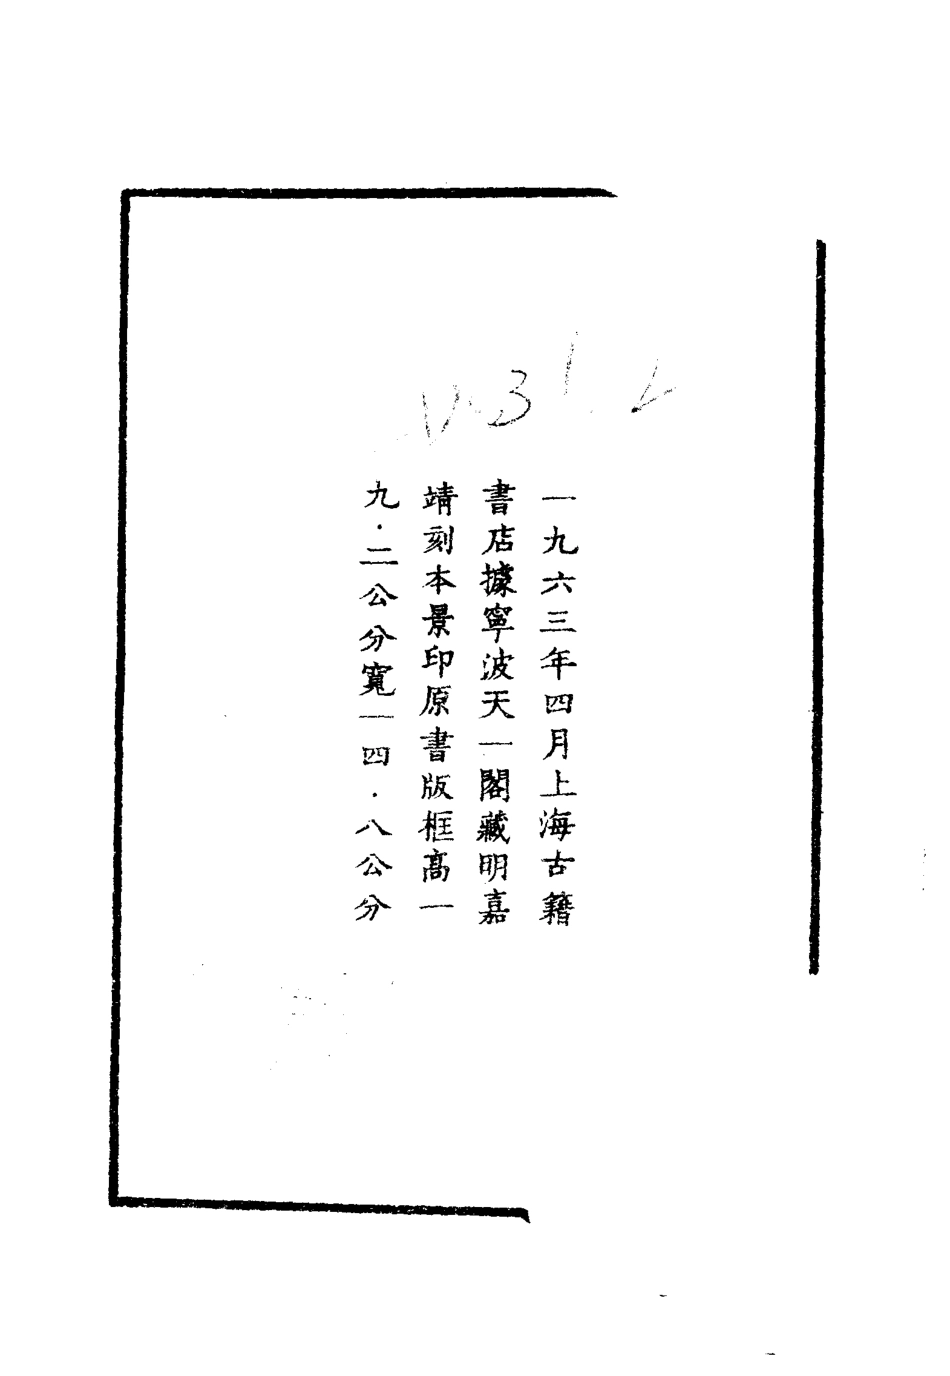 一九六三年四月上海古籍
書店據寧波天一閣藏明嘉
靖刻本景印原書版框高一
九·二公分寬一四·八公分